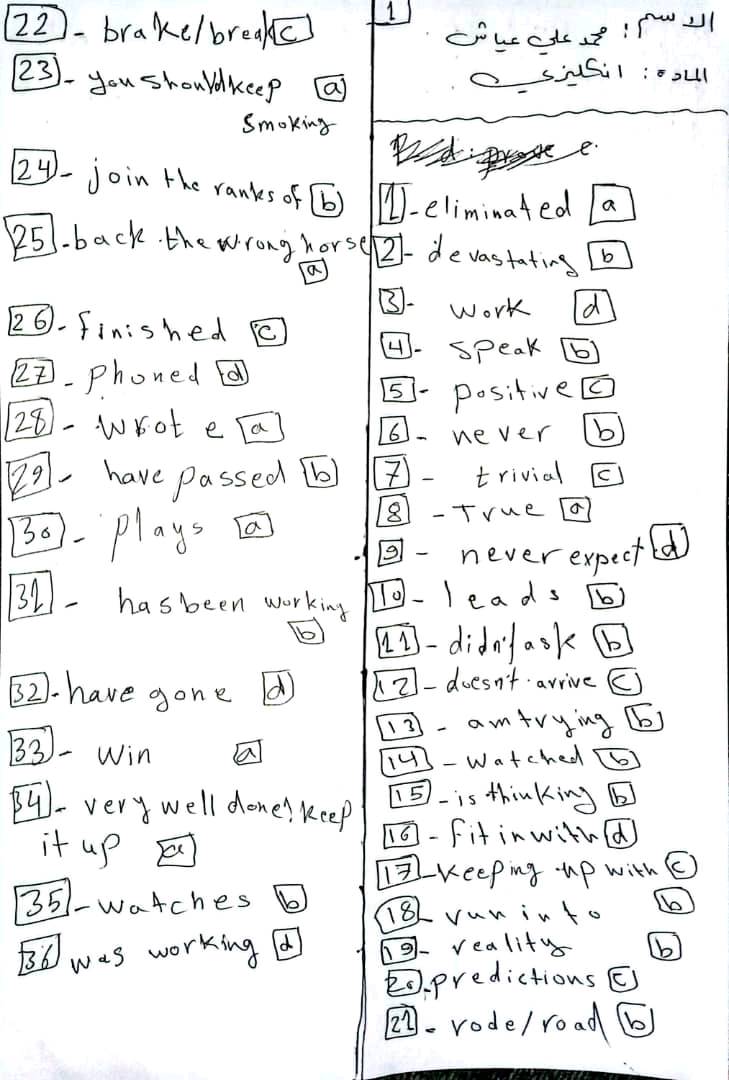 1
الاسم : محمد علي عياش
المادة : انكليزي
1 - eliminated a
2 - devastating b
3 - work d
4 - speak b
5 - positive c
6 - never b
7 - trivial c
8 - True a
9 - never expect d
10 - leads b
11 - didn't ask b
12 - doesn't arrive c
13 - am trying b
14 - watched b
15 - is thinking b
16 - fit in with d
17 - keeping up with c
18 - run into b
19 - reality b
20 - predictions c
21 - rode/road b
22 - brake/break c
23 - you should keep a
smoking
24 - join the ranks of b
25 - back the wrong horse
a
26 - finished c
27 - phoned d
28 - wrote a
29 - have passed b
30 - plays a
31 - has been working
b
32 - have gone d
33 - win a
34 - very well done! keep
it up a
35 - watches b
36 was working d